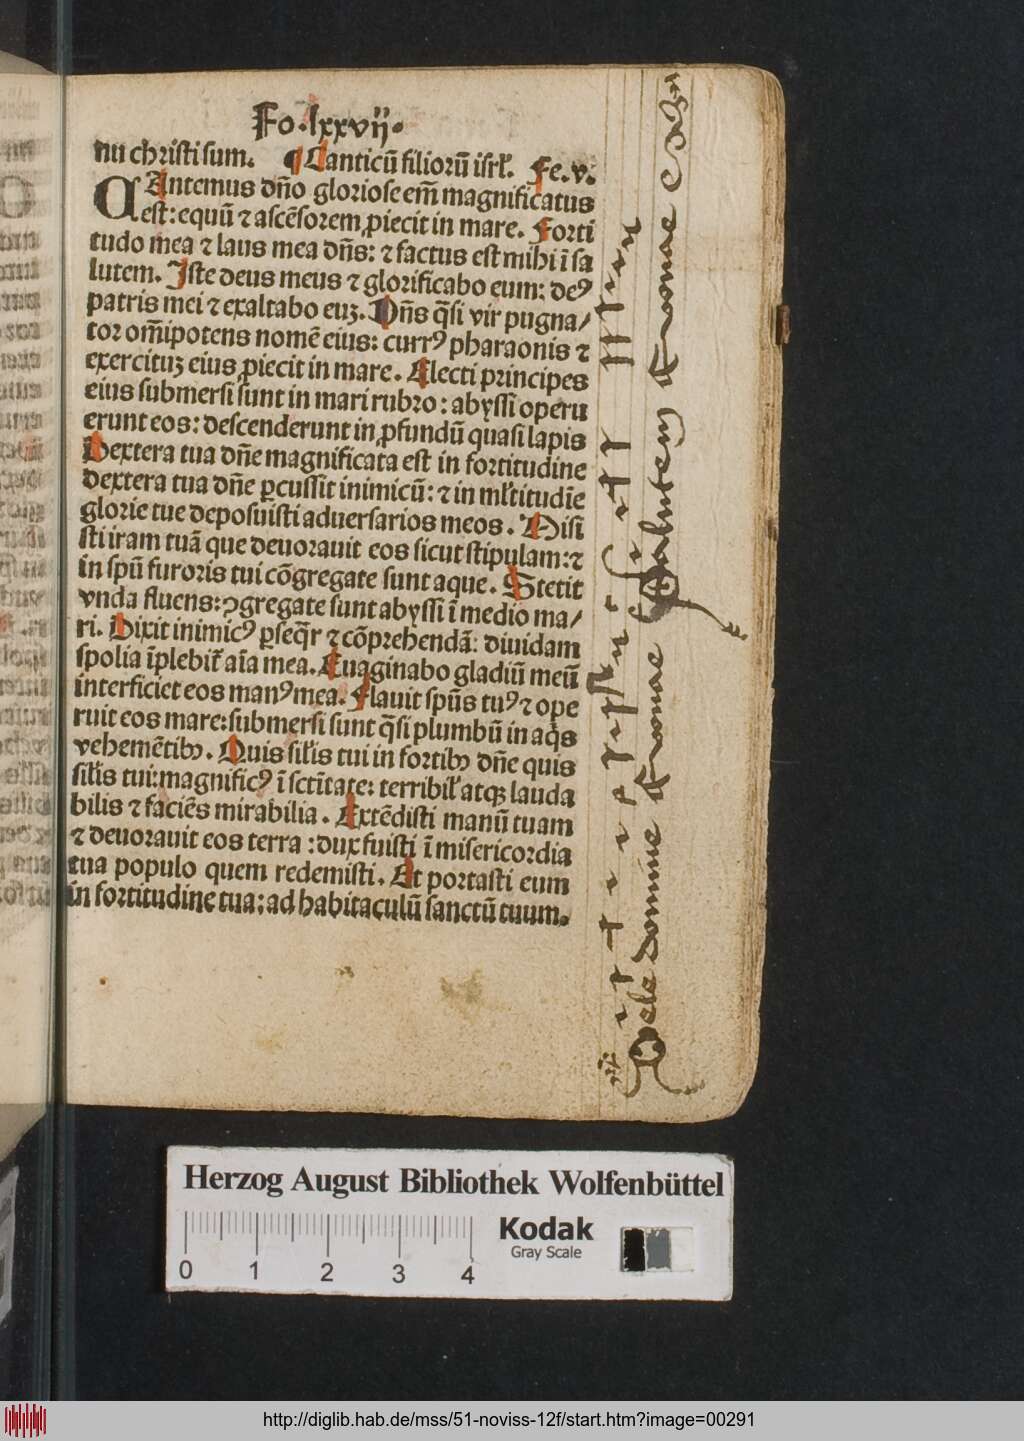 Fo.lxxvij.
nu christi sum. ¶ Canticū filiorū isrl̄. Fe.v.
CAntemus dño gloriose em̄ magnificatus
est: equū ⁊ ascēsorem ꝓiecit in mare. Forti
tudo mea ⁊ laus mea dñs: ⁊ factus est mihi ī sa
lutem. Iste deus meus ⁊ glorificabo eum: deꝰ
patris mei ⁊ exaltabo euꝫ. Dñs q̄si vir pugna/
tor om̄ipotens nomē eius: currꝰ pharaonis ⁊
exercituꝫ eius ꝓiecit in mare. Electi principes
eius submersi sunt in mari rubro: abyssi operu
erunt eos: descenderunt in ꝓfundū quasi lapis
Dextera tua dñe magnificata est in fortitudine
dextera tua dñe ꝑcussit inimicū: ⁊ in ml̄titudīe
glorie tue deposuisti aduersarios meos. Misi
sti iram tuā que deuorauit eos sicut stipulam: ⁊
in spū furoris tui cōgregate sunt aque. Stetit
vnda fluens: ꝯgregate sunt abyssi ī medio ma/
ri. Dixit inimicꝰ ꝑseq̄r ⁊ cōprehendā: diuidam
spolia īplebit̄ aīa mea. Euaginabo gladiū meū
interficiet eos manꝰ mea. Flauit spūs tuꝰ ⁊ ope
ruit eos mare: submersi sunt q̄si plumbū in aq̄s
vehemētibꝫ. Quis sil̄is tui in fortibꝫ dñe quis
sil̄is tui: magnificꝰ ī sctītate: terribil̄ atqꝫ lauda
bilis ⁊ faciēs mirabilia. Extēdisti manū tuam
⁊ deuorauit eos terra: dux fuisti ī misericordia
tua populo quem redemisti. Et portasti eum
in fortitudine tua: ad habitaculū sanctū tuum.
domine
Salutem
Herzog August Bibliothek Wolfenbüttel
0 1 2 3 4
Kodak
Gray Scale
http://diglib.hab.de/mss/51-noviss-12f/start.htm?image=00291